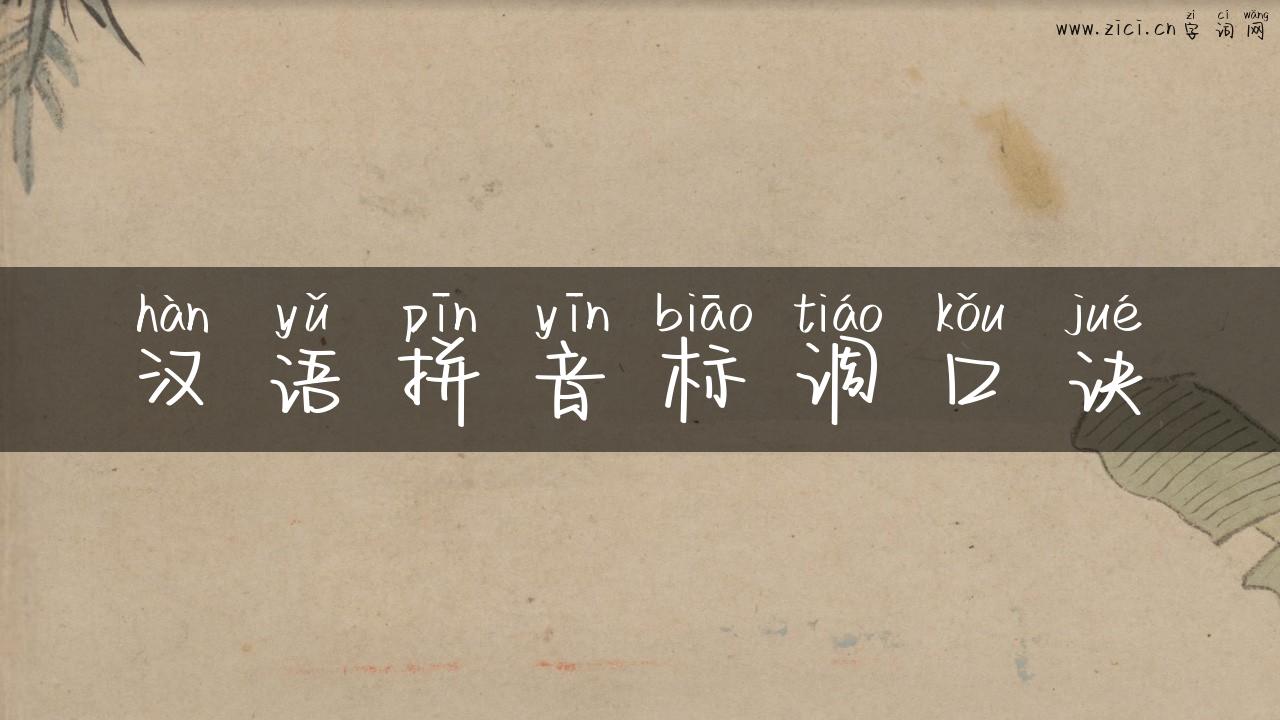 zì cí wǎng
www.zici.cn 字 词 网
hàn yǔ pīn yīn biāo tiáo kǒu jué
汉 语 拼 音 标 调 口 诀